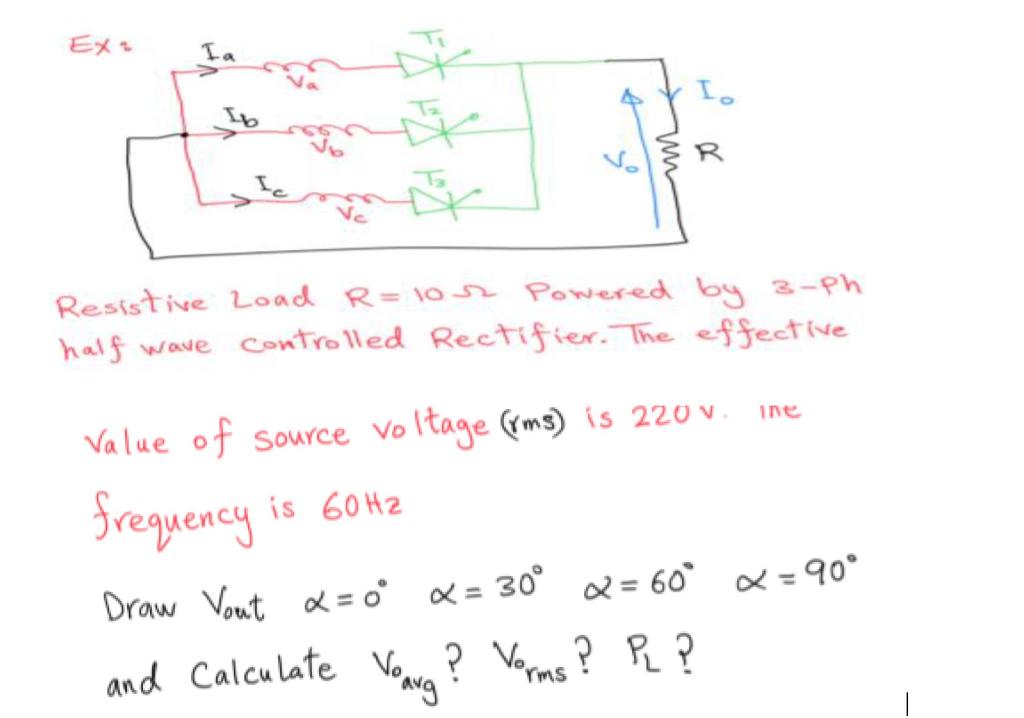 Ex:
Ia
Va
T1
Ib
Vb
T2
Ic
Vc
T3
Vo
Io
R
Resistive Load R = 10 Ω Powered by 3-Ph
half wave controlled Rectifier. The effective
Value of source voltage (rms) is 220 V. The
frequency is 60Hz
Draw Vout α = 0° α = 30° α = 60° α = 90°
and Calculate Vo avg ? Vo rms ? PL ?